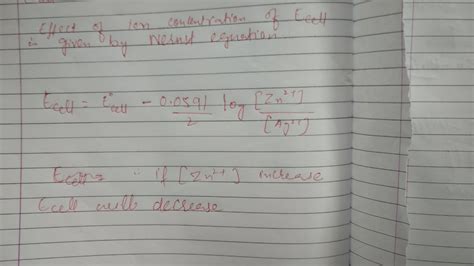 Effect of ion concentration of Ecell
is given by Nernst equation.
Ecell = E°cell - 0.0591/2 log [Zn2+]/[Ag2+]
Ecell if [Zn2+] increase
Ecell will decrease